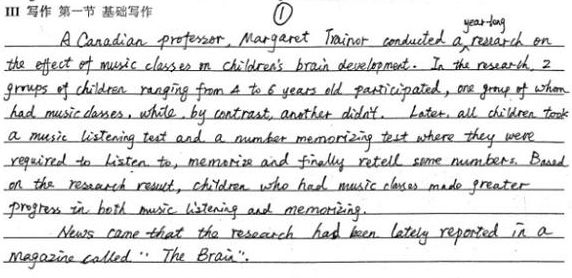 III 写作 第一节 基础写作
①
A Canadian professor, Margaret Trainor conducted a year-long research on
the effect of music classes on children's brain development. In the research, 2
groups of children ranging from 4 to 6 years old participated, one group of whom
had music classes, while, by contrast, another didn't. Later, all children took
a music listening test and a number memorizing test where they were
required to listen to, memorize and finally retell some numbers. Based
on the research result, children who had music classes made greater
progress in both music listening and memorizing.
News came that the research had been lately reported in a
magazine called " The Brain".